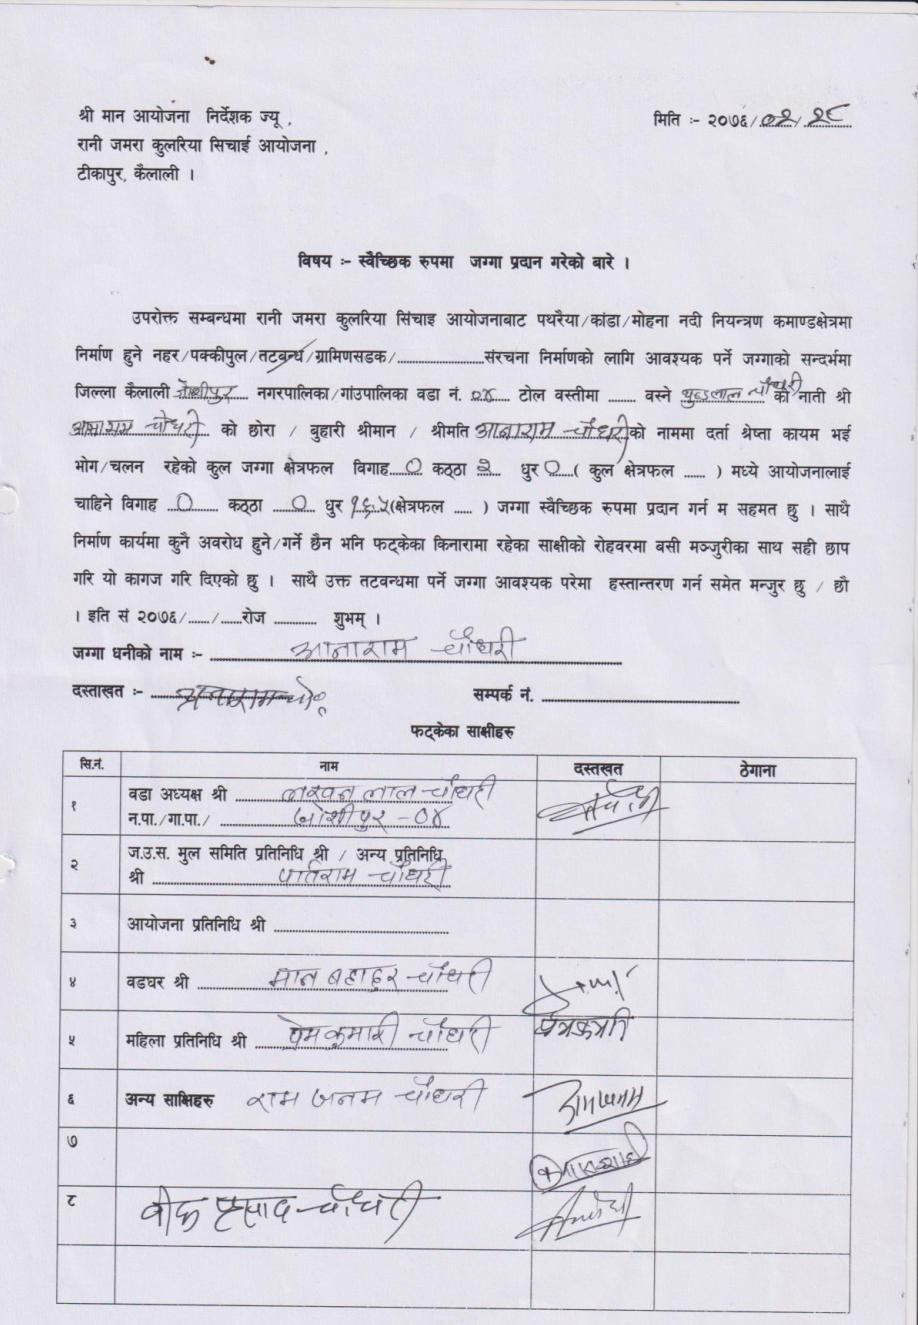 श्री मान आयोजना निर्देशक ज्यू ,
मिति :- २०७६/०२/२८
रानी जमरा कुलरिया सिचाई आयोजना ,
टीकापुर, कैलाली ।
विषय :- स्वैच्छिक रुपमा जग्गा प्रदान गरेको बारे ।
उपरोक्त सम्बन्धमा रानी जमरा कुलरिया सिंचाइ आयोजनाबाट पथरैया/कांडा/मोहना नदी नियन्त्रण कमाण्डक्षेत्रमा
निर्माण हुने नहर/पक्कीपुल/तटबन्ध/ग्रामिणसडक/........................संरचना निर्माणको लागि आवश्यक पर्ने जग्गाको सन्दर्भमा
जिल्ला कैलाली जोशीपुर नगरपालिका/गांउपालिका वडा नं. ०४ टोल वस्तीमा ........ वस्ने लाल चौधरी को नाती श्री
चौधरी को छोरा / बुहारी श्रीमान / श्रीमति आनाराम चौधरी को नाममा दर्ता श्रेष्ता कायम भई
भोग/चलन रहेको कुल जग्गा क्षेत्रफल विगाह ० कठ्ठा २ धुर ० ( कुल क्षेत्रफल ...... ) मध्ये आयोजनालाई
चाहिने विगाह ० कठ्ठा ० धुर १६.५ (क्षेत्रफल ..... ) जग्गा स्वैच्छिक रुपमा प्रदान गर्न म सहमत छु । साथै
निर्माण कार्यमा कुनै अवरोध हुने/गर्ने छैन भनि फट्केका किनारामा रहेका साक्षीको रोहवरमा बसी मञ्जुरीका साथ सही छाप
गरि यो कागज गरि दिएको छु । साथै उक्त तटवन्धमा पर्ने जग्गा आवश्यक परेमा हस्तान्तरण गर्न समेत मन्जुर छु / छौ
। इति सं २०७६/....../......रोज ............ शुभम् ।
जग्गा धनीको नाम :- आनाराम चौधरी
दस्ताखत :- सम्पर्क नं. ..........................................
फट्केका साक्षीहरु
सि.नं. नाम दस्तखत ठेगाना
१ वडा अध्यक्ष श्री लाल चौधरी
न.पा./गा.पा./ जोशीपुर - ०४
२ ज.उ.स. मुल समिति प्रतिनिधि श्री / अन्य प्रतिनिधि
श्री पातिराम चौधरी
३ आयोजना प्रतिनिधि श्री ......................................
४ वडघर श्री मान बहादुर चौधरी
५ महिला प्रतिनिधि श्री प्रेमकुमारी चौधरी
६ अन्य साक्षिहरु राम जनम चौधरी रामजनम
७
८ प्रसाद चौधरी